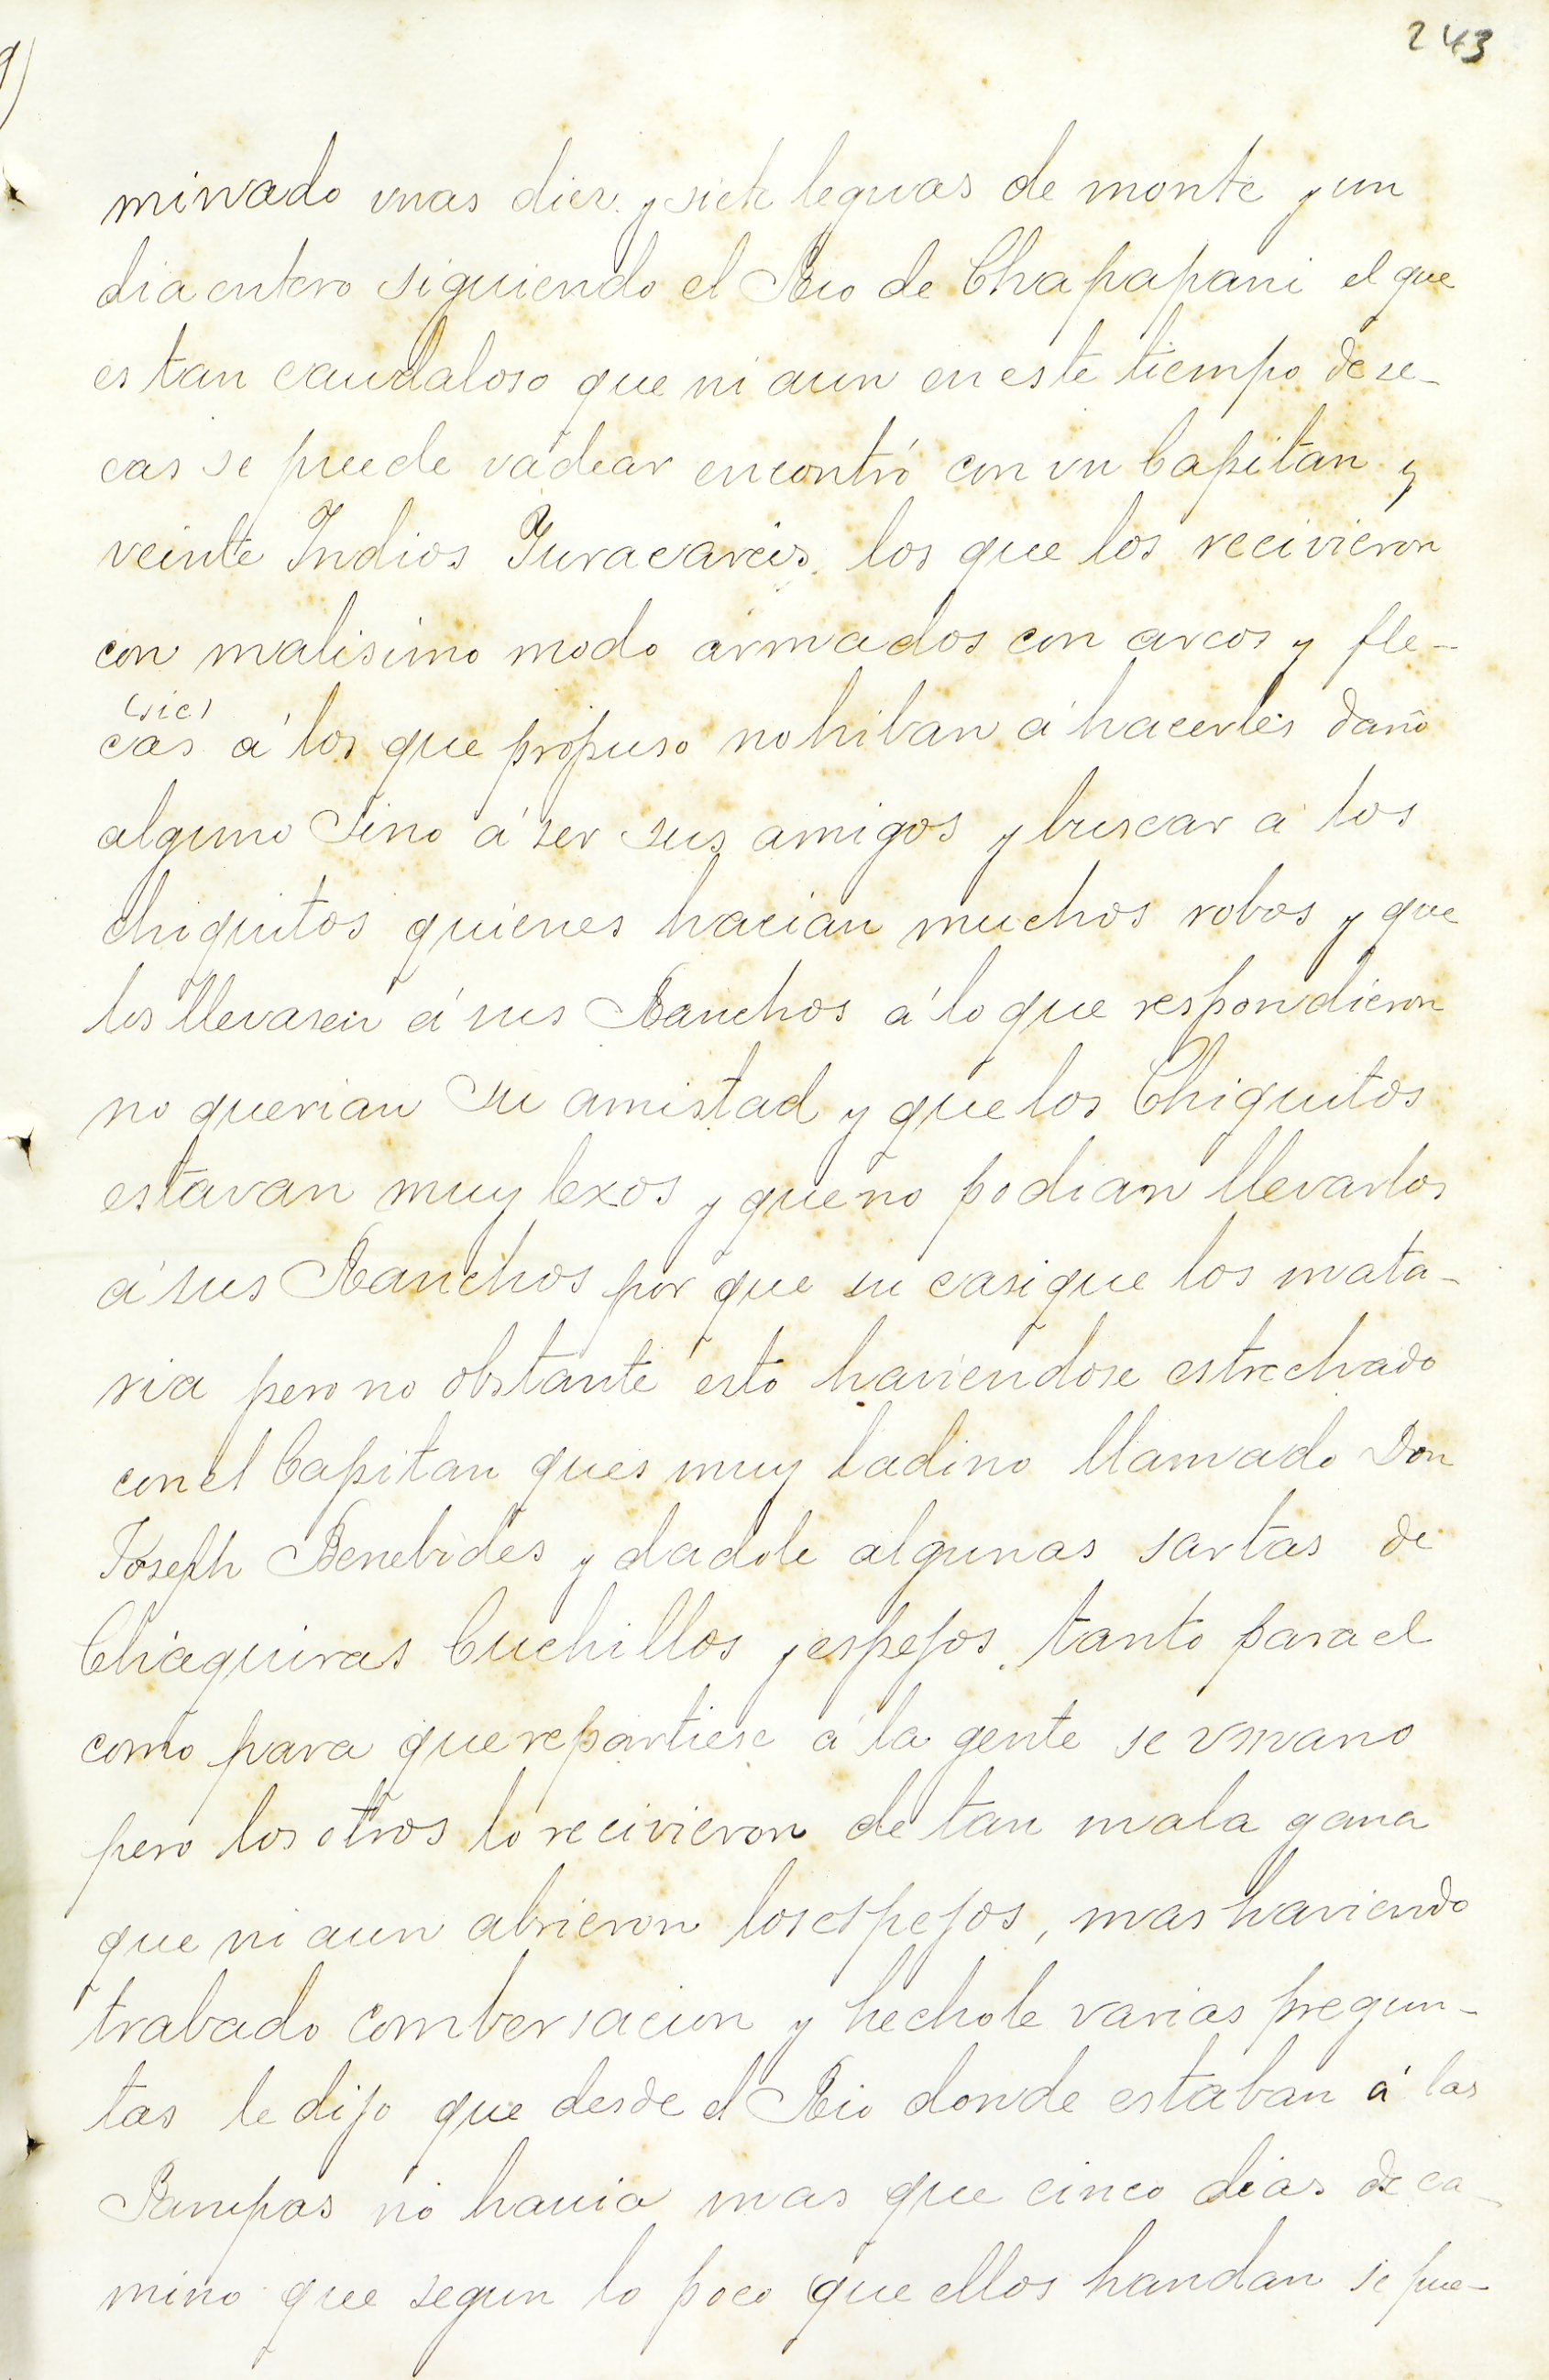 243
minado unas diez y siete leguas de monte y un
dia entero siguiendo el Rio de Chapapani el que
es tan caudaloso que ni aun en este tiempo de se-
cas se puede vadear encontró con un Capitan y
veinte Indios Yuracarées los que los recivieron
con malisimo modo armados con arcos y fle-
(sic)
cas á los que propuso no hiban á hacerles daño
alguno sino á ser sus amigos y buscar a los
chiquitos quienes hacian muchos robos y que
los llevasen á sus Ranchos á lo que respondieron
no querian su amistad y que los Chiquitos
estavan muy lexos y que no podian llevarlos
á sus Ranchos por que su casique los mata-
ria pero no obstante esto haviendose estrechado
con el Capitan ques muy ladino llamado Don
Joseph Benebides y dadole algunas sartas de
Chaquiras Cuchillos y espejos tanto para el
como para que repartiese a la gente se vmano
pero los otros lo recivieron de tan mala gana
que ni aun abrieron los espejos, mas haviendo
trabado combersacion y hechole varias pregun-
tas le dijo que desde el Rio donde estaban á las
Pampas no havia mas que cinco dias de ca-
mino que segun lo poco que ellos handan se pue-